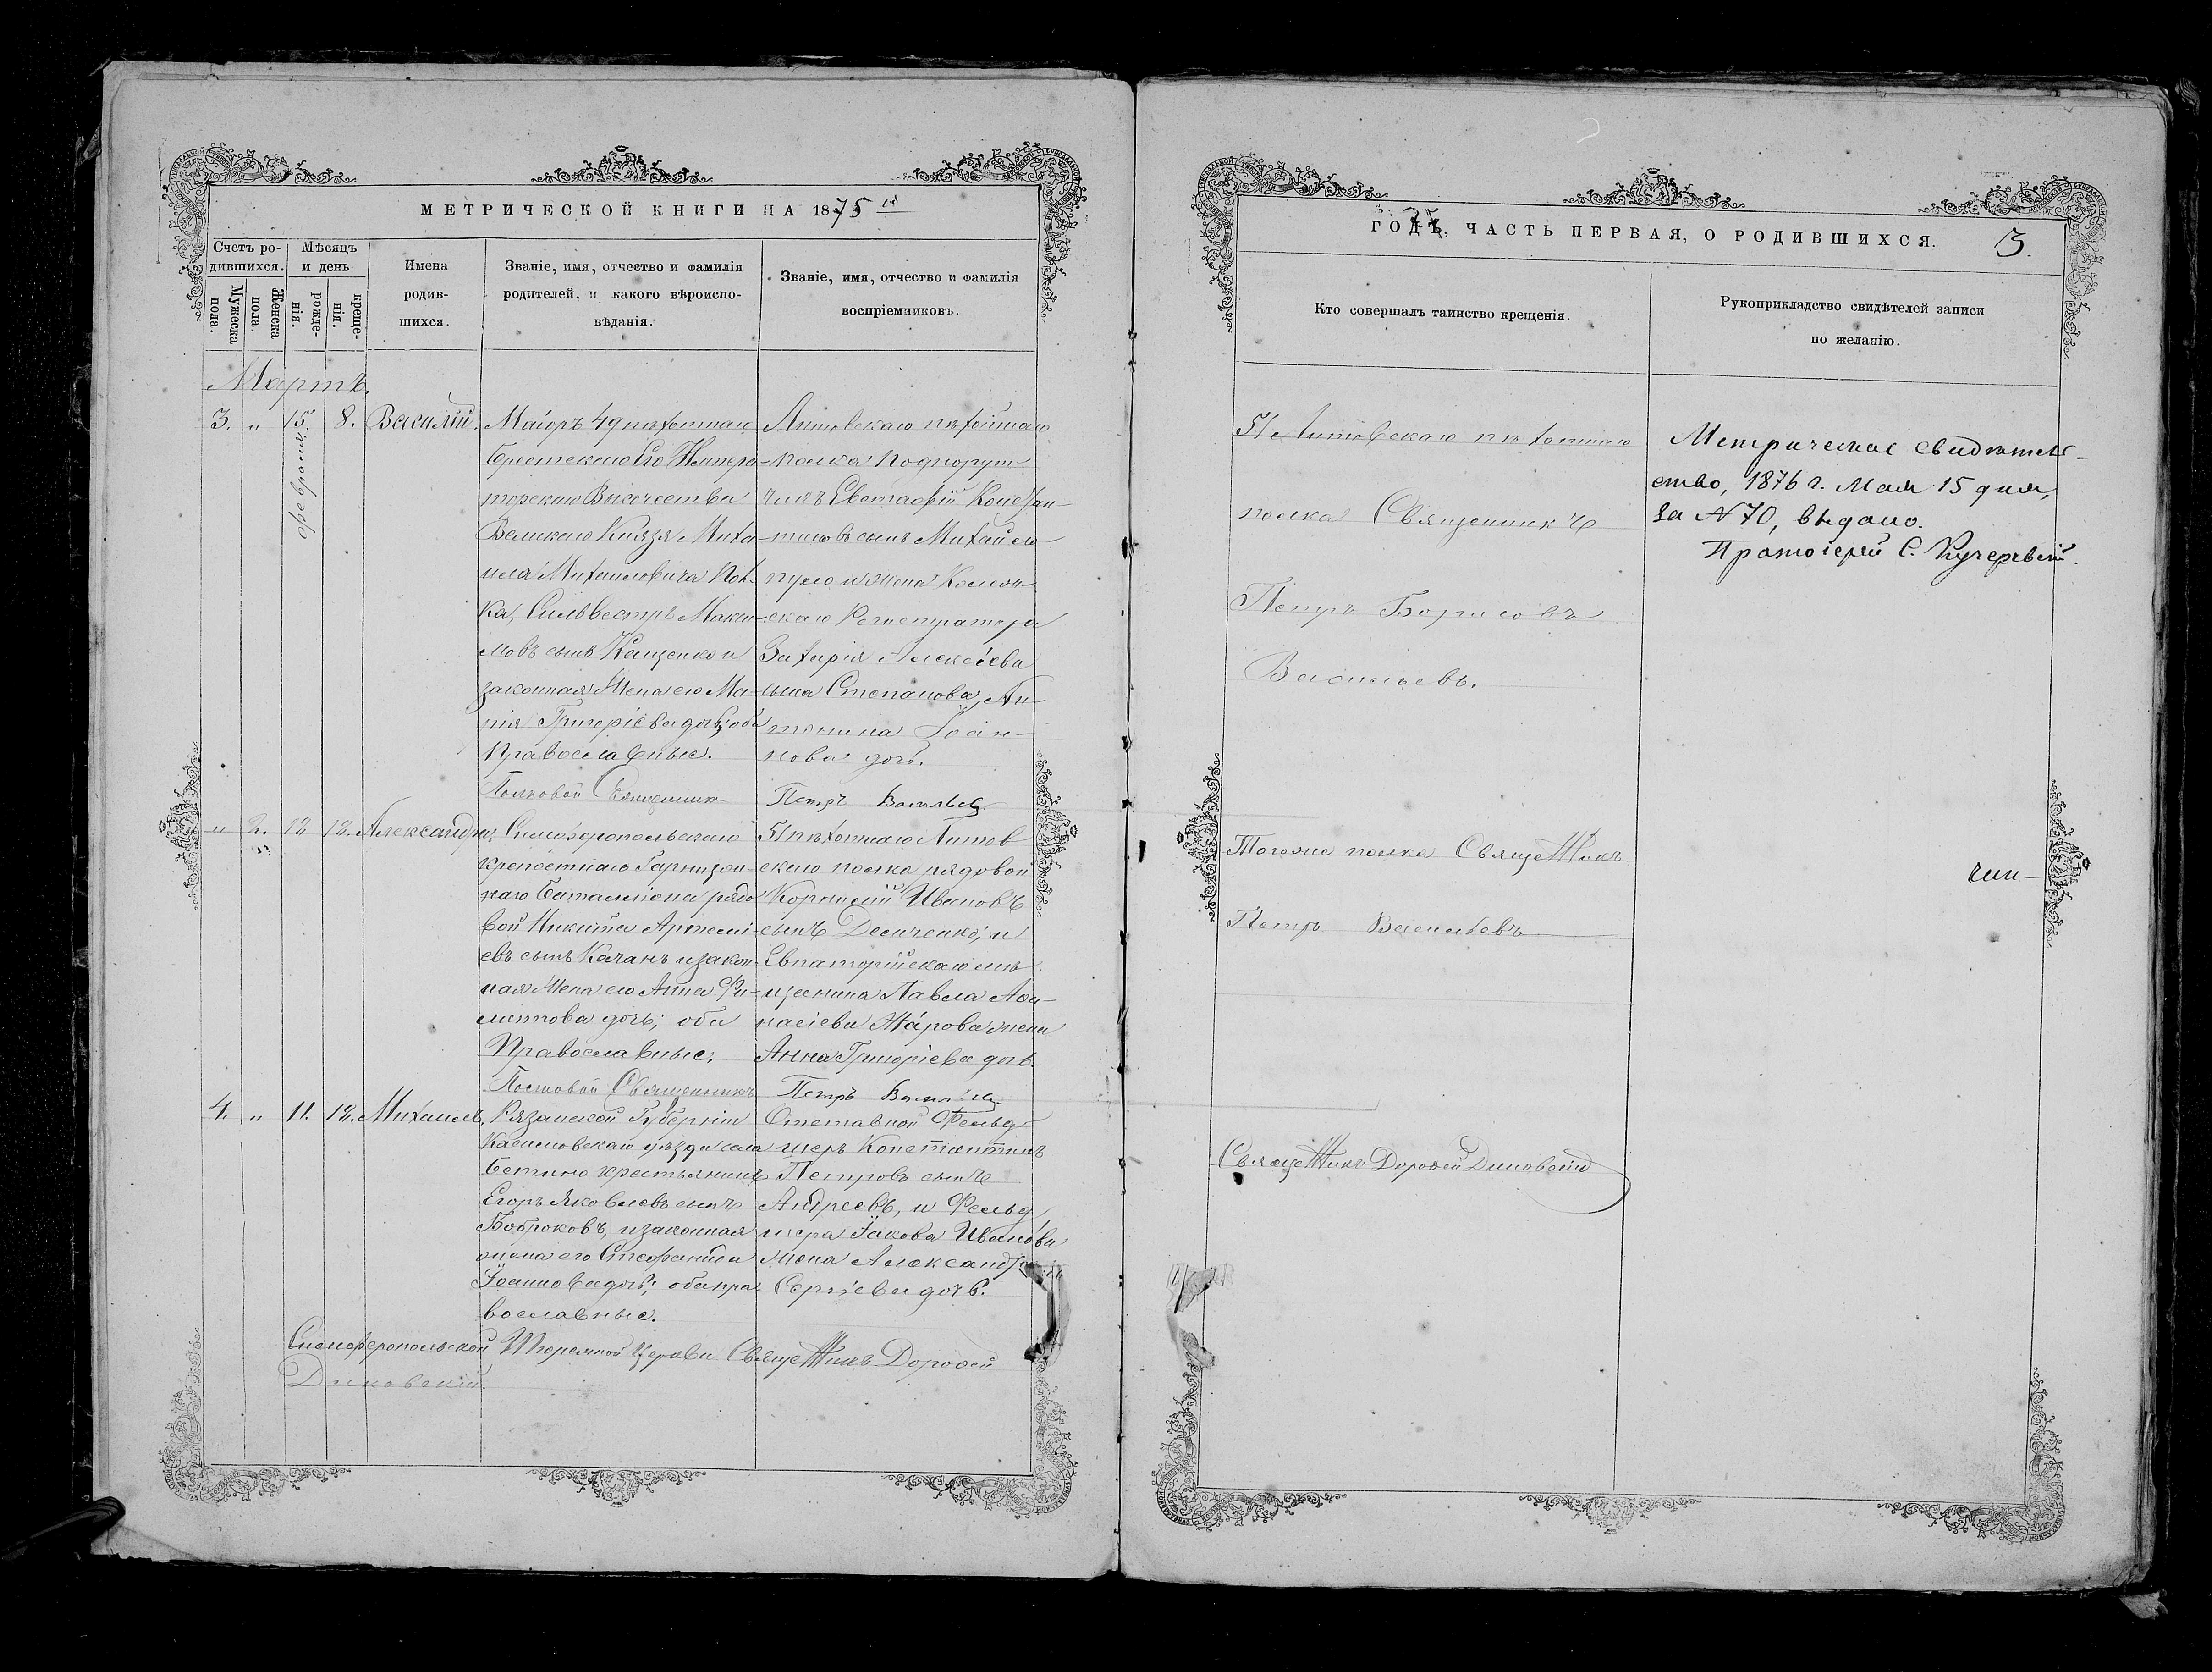 МЕТРИЧЕСКОЙ КНИГИ НА 1875 й
Счетъ ро-
дившихся.
Мѣсяцъ
и день
Мужеска
пола.
Женска
пола.
рожде-
нія.
креще-
нія.
Имена
родив-
шихся.
Званіе, имя, отчество и фамилія
родителей, и какого вѣроиспо-
вѣданія.
Званіе, имя, отчество и фамилія
воспріемниковъ.
Мартъ.
3. " 15. 8. Василій.
февраля
Маіоръ 49 пѣхотнаго
Брестскаго Его Импера-
торскаго Высочества
Великаго Князя Миха-
ила Михаиловича Пол-
ка, Сильвестръ Макси-
мовъ сынъ Кащенко и
законная жена его Ма-
рія Григоріева дочь, оба
Православные.
Литовскаго пѣхотнаго
полка Подпорут-
чикъ Евстафій Констан-
тиновъ сынъ Михайло-
пуло и жена Коллеж-
скаго Регистратора
Захарія Алексѣева
сына Степанова, Ан-
тонина Іоан-
нова дочь.
Полковой Священникъ Петръ Васильевъ
" 2. 12 12. Александра,
Симферопольскаго
крѣпостнаго Гарнизон-
наго Баталліона рядо-
вой Никита Артемі-
евъ сынъ Качанъ и закон-
ная жена его Анна Фи-
липпова дочь; оба
Православные;
51 пѣхотнаго Литов
скаго полка рядовой
Корнилій Ивановъ
сынъ Демченко; и
Евпаторійскаго мѣ
щанина Павла Аѳа-
насіева Жарова жена
Анна Григоріева дочь.
Полковой Священникъ Петръ Васильевъ
4. " 11. 12. Михаилъ,
Рязанской Губерніи
Касимовскаго уѣзда села
Бетино крестьянинъ
Егоръ Яковлевъ сынъ
Бобровъ, и законная
жена его Стефанида
Іоаннова дочь; оба пра
вославные.
Отставной Фельд
шеръ Константинъ
Петровъ сынъ
Андреевъ, и Фельд
шера Іакова Иванова
жена Александра
Сергіева дочь.
Симферопольской Тюремной Церкви Священникъ Дороѳей
Диковскій.
ГОДЪ, ЧАСТЬ ПЕРВАЯ, О РОДИВШИХСЯ. 3.
Кто совершалъ таинство крещенія.
Рукоприкладство свидѣтелей записи
по желанію.
51 Литовскаго пѣхотнаго
полка Священникъ
Петръ Борисовъ
Васильевъ.
Метрическое свидѣтель-
ство, 1876 г. Мая 15 дня,
за № 70, выдано.
Протоіерей С. Кучеревскій.
Тогоже полка Священникъ
Петръ Васильевъ
чин-
Священникъ Дороѳей Диковскій